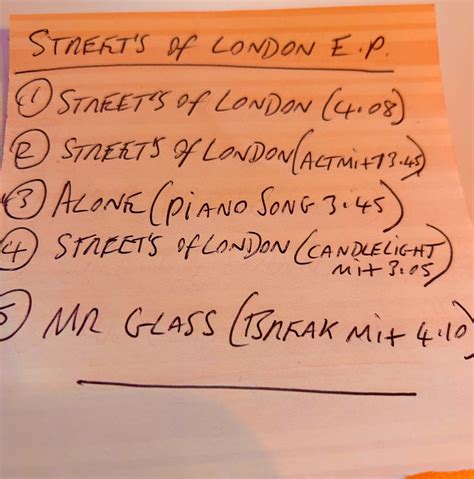 STREET'S OF LONDON E.P.
① STREET'S OF LONDON (4.08)
② STREETS OF LONDON (ALT MIX 3.45)
③ ALONE (PIANO SONG 3.45)
④ STREET'S OF LONDON (CANDLELIGHT
MIX 3.05)
⑤ MR GLASS (BREAK MIX 4.10)